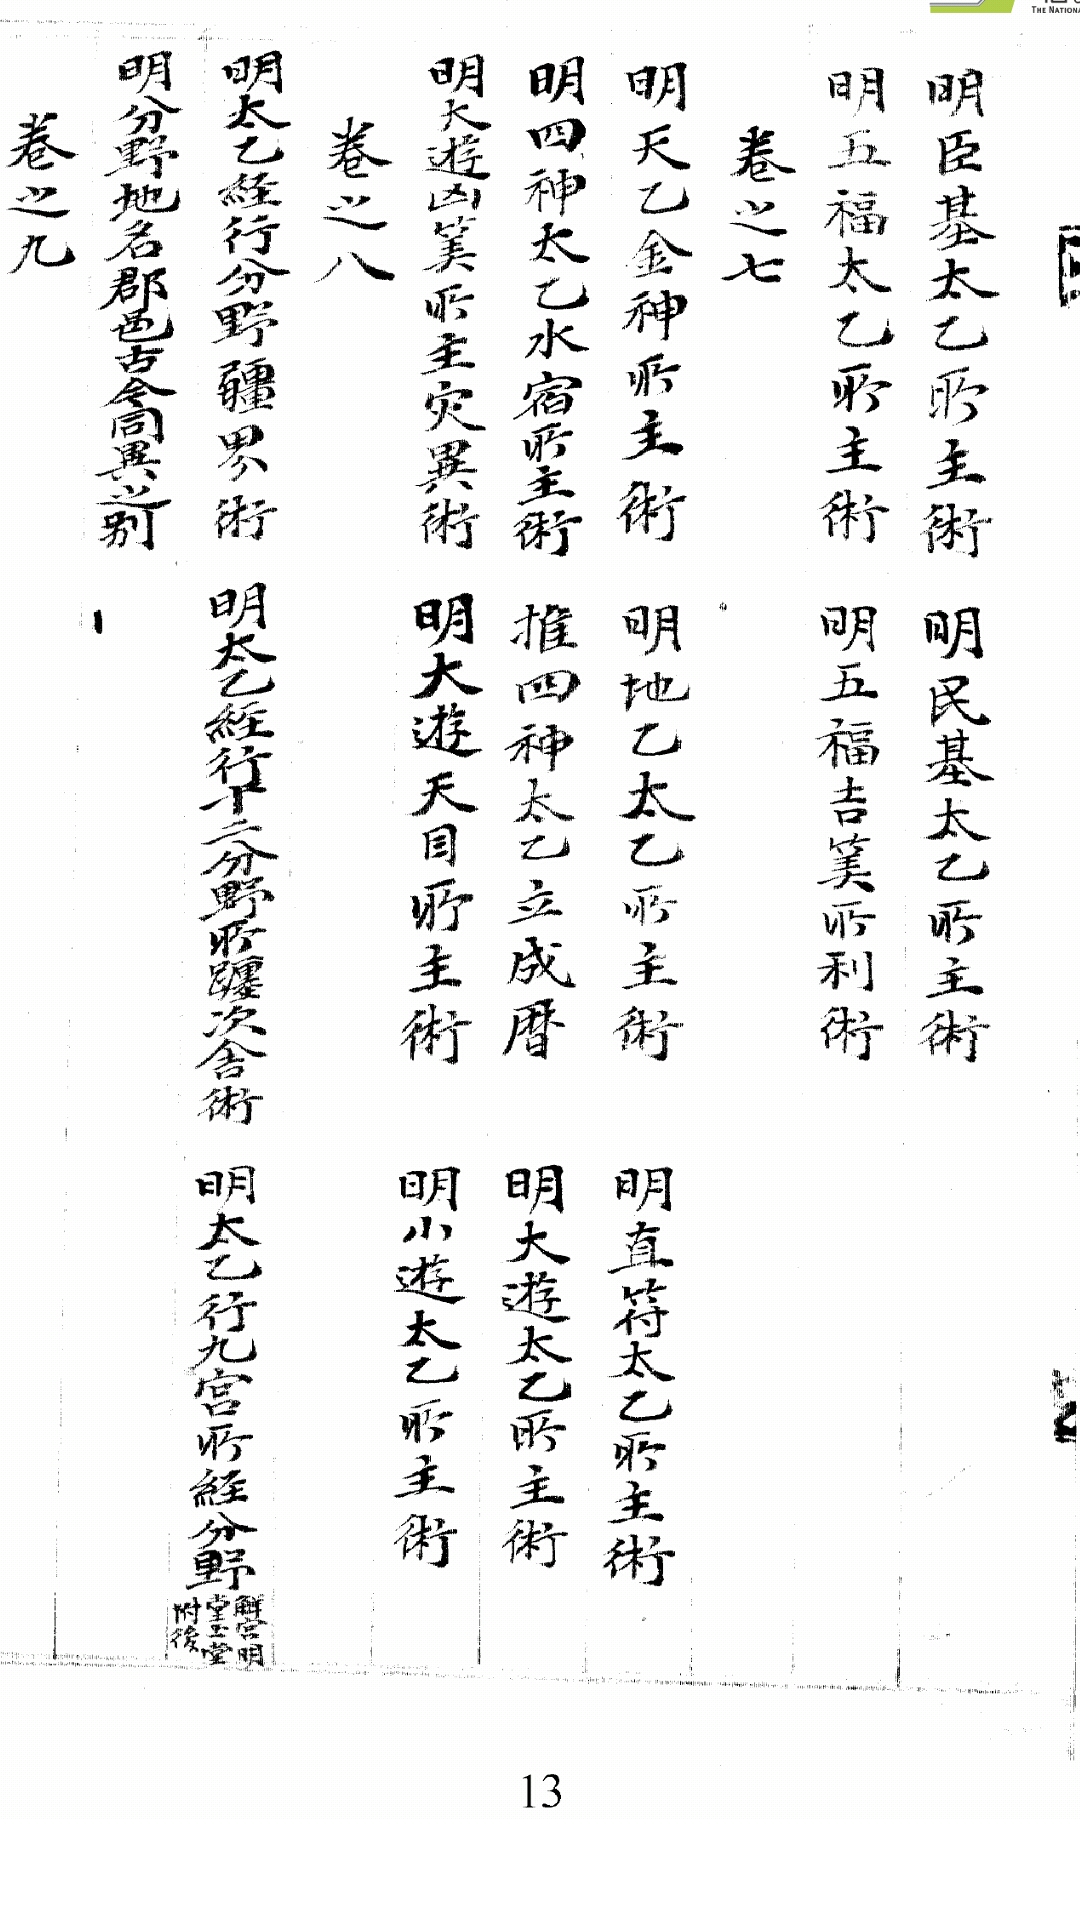 THE NATIONA
明臣基太乙所主術 明民基太乙所主術
明五福太乙所主術 明五福吉筭所利術
卷之七
明天乙金神所主術 明地乙太乙所主術 明直符太乙所主術
明四神太乙水宿所主術 推四神太乙立成曆 明大遊太乙所主術
明大遊凶筭所主灾異術 明大遊天目所主術 明小遊太乙所主術
卷之八
明太乙経行分野疆界術 明太乙経行十二分野所躔次舍術 明太乙行九宮所経分野
解宮明
堂玉堂
附後
明分野地名郡邑古今同異之别
卷之九
13